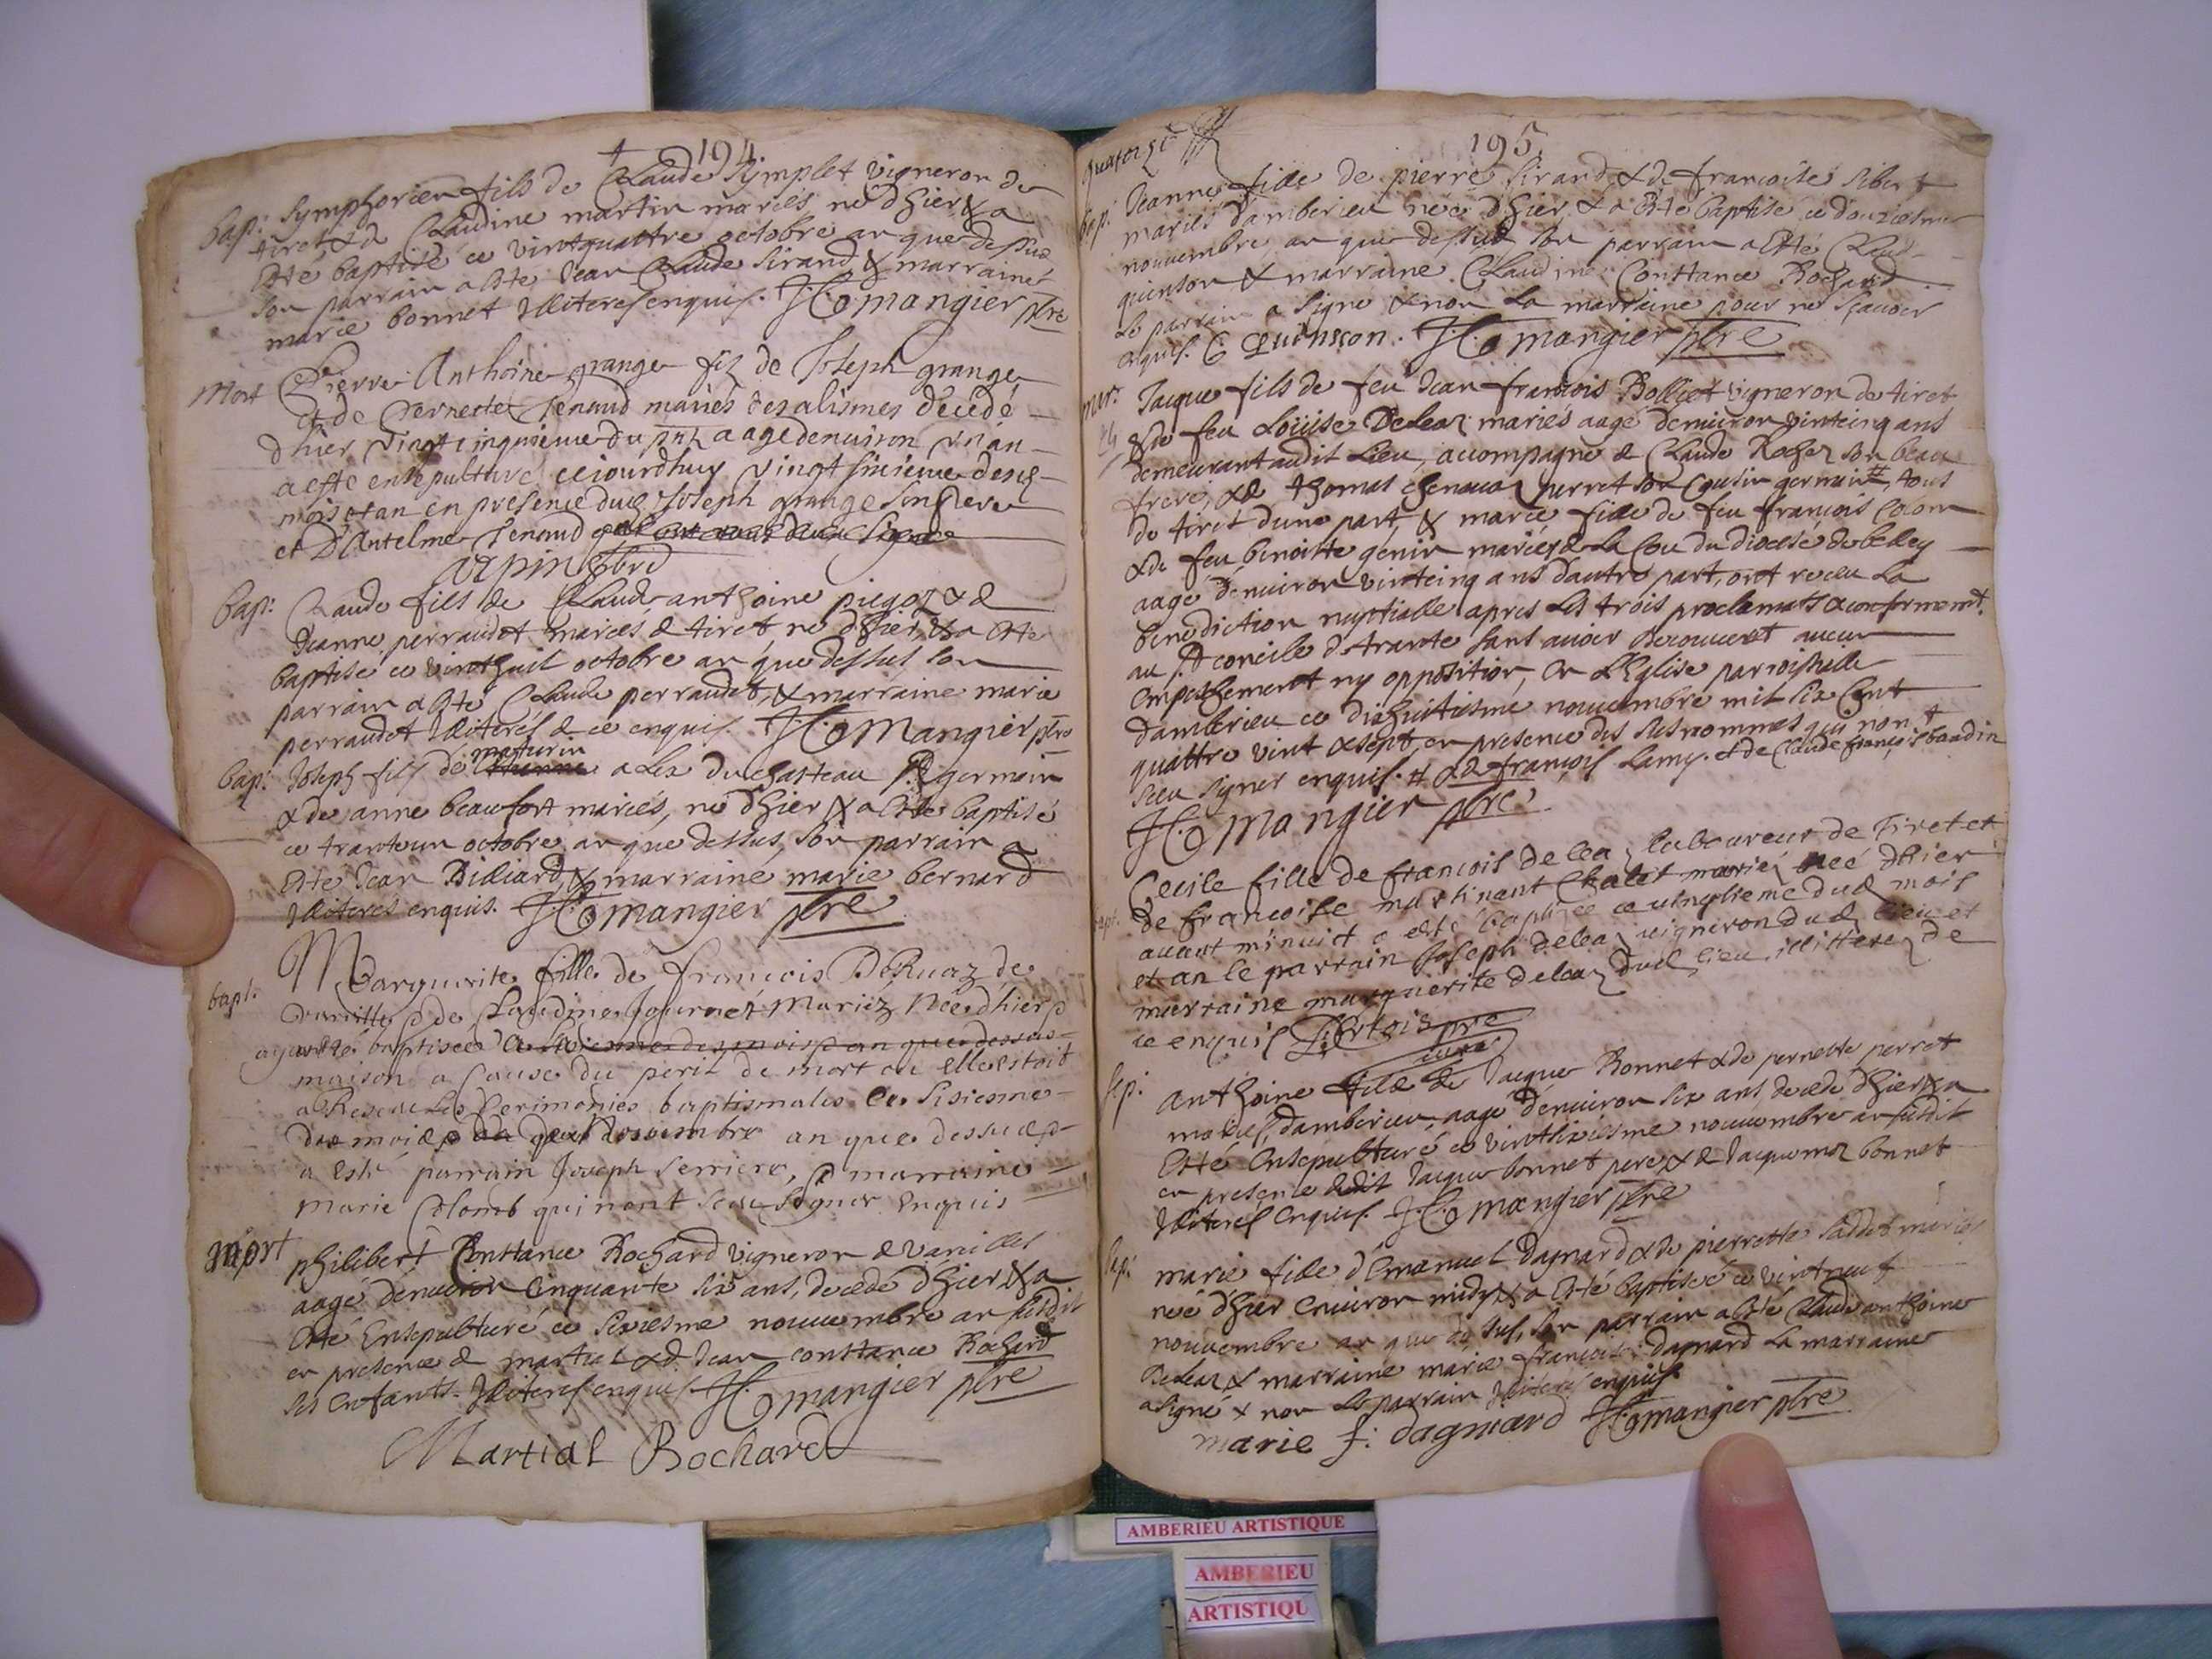 194
bap: Symphorien fils de Claude Symplet vigneron de
tiret & de Claudine martin mariés né dhier & a
esté baptisé ce vintquattre octobre an que dessus
son parrain a esté Jean Claude sirand & marraine
marie bonnet illiteres enquis. mangier pbre
Mort Pierre Anthoine grange fiz de Joseph grange
et de Pernette senoud mariés des alismes décédé
dhier vingt cinquieme du pnt aage denuiron un an
a esté ensepulturé ceiourdhuy vingt sixieme desd
mois et an en presence dud Joseph grange son pere
et D'Antelme senoud
arpin pbre
bap: Claude fils de Claude anthoine piegoz & de
Jeanne perraudet mariés de tiret né dhier & a esté
baptisé ce vinthuit octobre an que dessus son
parrain a esté Claude perraudet, & marraine marie
perraudet illiteres de ce enquis. Mangier pbre
maturin
bap: Joseph fils de a Lex du chasteau St germain
& de anne beaufort mariés, né dhier & a esté baptisé
ce tranteun octobre an que dessus, son parrain a
esté Jean Billiard, & marraine marie bernard
illiteres enquis. mangier pbre
bapt. Marguerite fille de francois DeRuaz de
& de Claudine Journet Mariéz Née dhier &
ayant été baptisée a la
maison a Cause du peril de mort ou elle estoit
a Receu Les Cerimonies baptismales Ce Sisiesme
de novembre an que dessus
a esté parrain Joseph serriere, & marraine
Marie Colomb qui nont sceu Signer enquis
mort philibert Constance Rochard vigneron de Vareilles
aagé denuiron Cinquante six ans, decedé dhier & a
esté Ensepulturé ce sixiesme nouuembre an susdit
en presence de martial & de Jean constance Rochard
ses enfants. illiteres enquis mangier pbre
Martial Rochard
195
quatorze
bap: Jeanne fille de pierre sirand & de francoise sibert
mariés damberieu née dhier & a esté baptisé ce douziesme
nouuembre an que dessus son parrain a esté Claude
quinson & marraine Claudine Constance Rochard
Le parrain a signé & non La marraine pour ne scauoir
enquis. C Quinsson. mangier pbre
mar: Jaque fils de feu Jean francois Bolliet vigneron de tiret
& de feu Louise Deleaz mariés aagé denuiron vintcinq ans
demeurant audit Lieu, accompagné de Claude Roche son beau
frere, & de thomas perret son Cousin germain #, tous
de tiret dune part, & marie fille de feu francois Colom
& de feu benoitte genin mariez de La Cou du diocese de belley
aagé denuiron vintcinq ans dautre part, ont receu La
benediction nuptialle apres Les trois proclamats & conformemt.
au St concile de trante sans auoir decouuert aucun
empeschement ny opposition, en L'Eglise parroissielle
damberieu ce dixhuitiesme nouuembre mil six Cent
quattre vint & sept, en presence des susnommes qui nont
sceu signer enquis. # & de francois Lamy. et de Claude françois baudin
mangier pbre
bapt. Cecile fille de francois delea laboureur de Tiret et
de francoise martinant Chalet mariez née dhier
auant minuict a esté baptizee ce uingtieme dud mois
et an le parrain Joseph delea uigneron dud lieu et
marraine marguerite deleaz dud lieu illitterez de
ce enquis pbre
curé
sep: anthoine fils de Jaque Bonnet & de pernette perret
mariés, damberieu, aagé denuiron six ans decedé dhier & a
Esté Ensepulturé ce vintsixiesme nouuembre an susdit
en presence dudit Jaque bonnet pere, & de Jaquemoz bonnet
illiteres enquis. mangier pbre
bap: marie fille d'Emanuel Dagnard & de pierrette saddet mariés
née dhier enuiron midy & a esté baptiséé ce vintneuf
nouuembre an que dessus, son parrain a esté Claude anthoine
Deleaz & marraine marie francoise dagnard La marraine
a signé & non Le parrain illiteres enquis.
marie f: dagnard mangier pbre
AMBERIEU ARTISTIQUE
AMBERIEU
ARTISTIQU